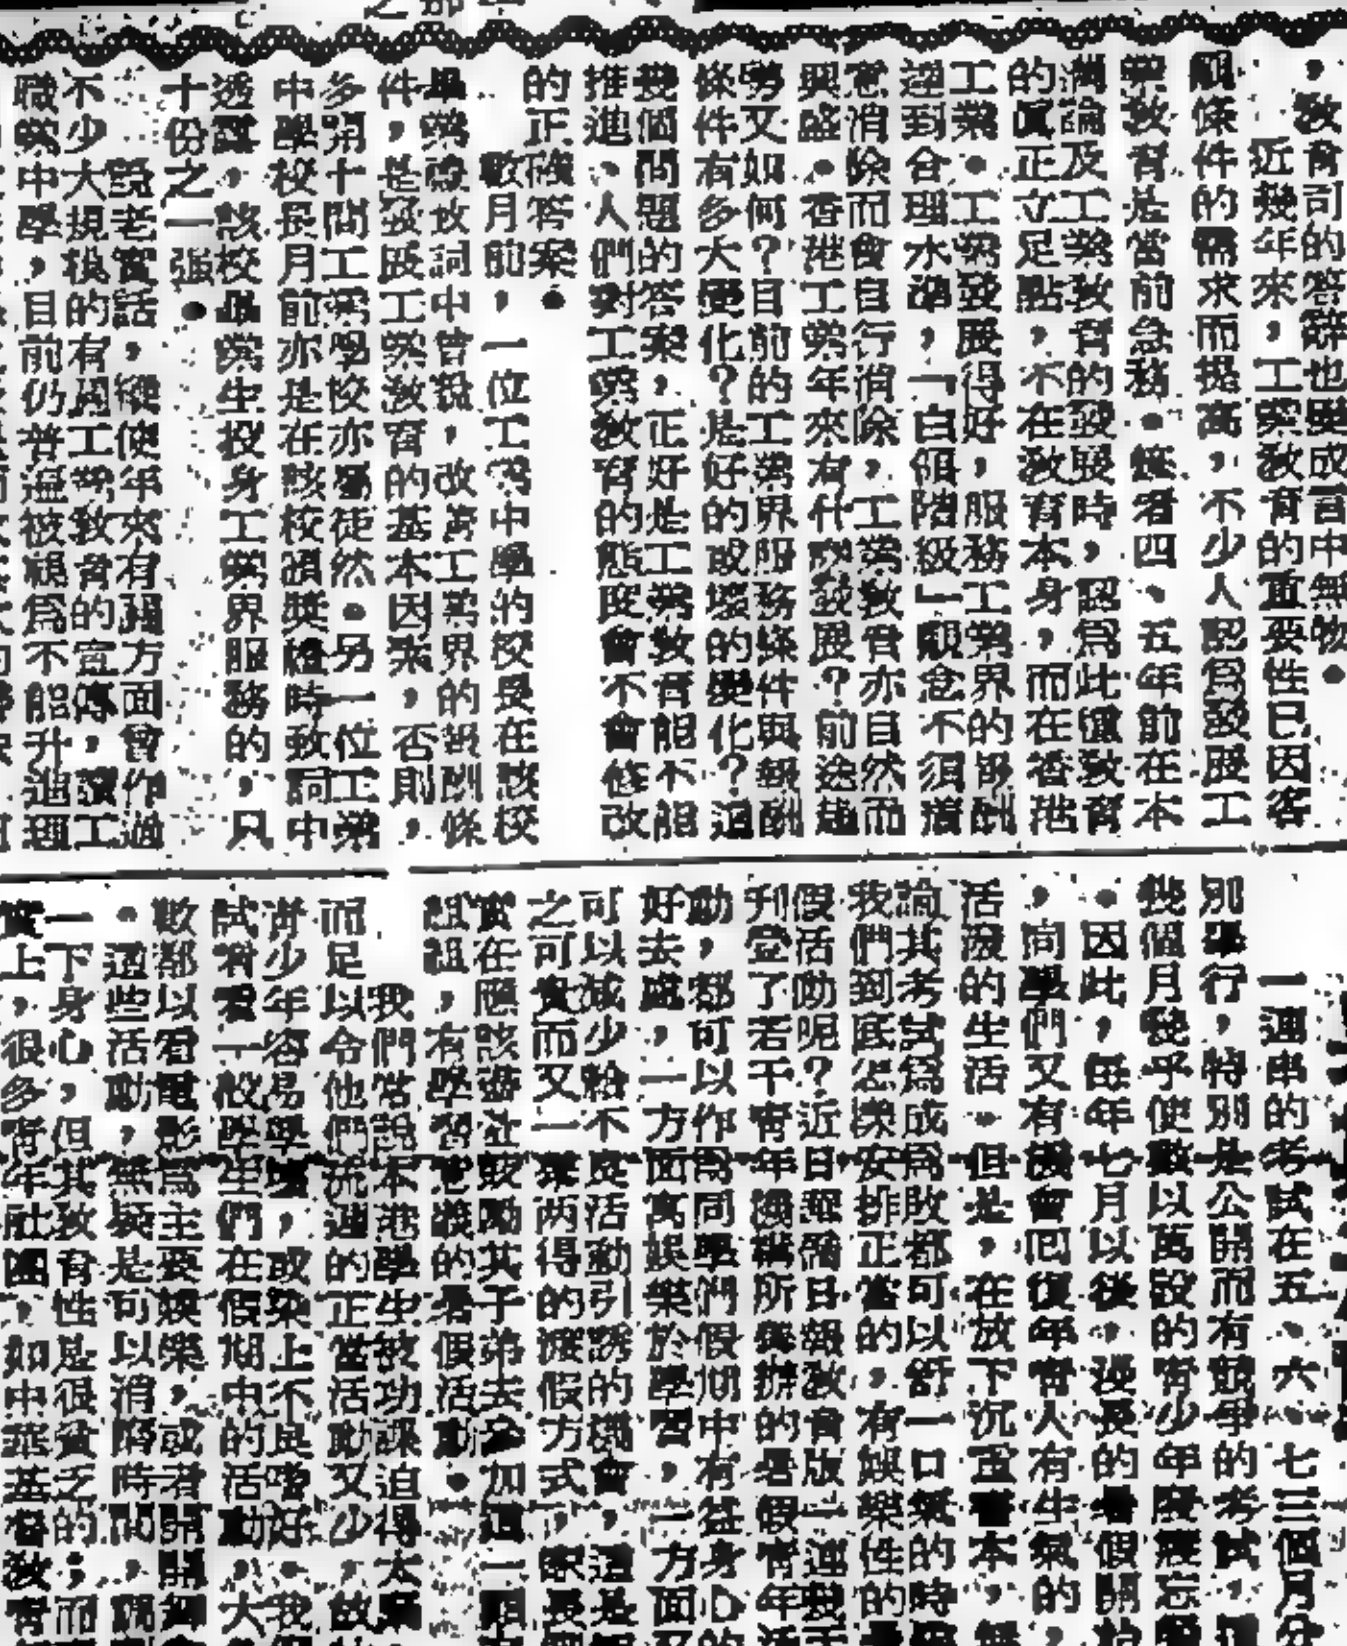 ，教育司的答辭也變成言中無物●
近幾年來，工業教育的重要性已因客
觀條件的需求而提高，不少人認爲發展工
業教育是當前急務●筆者四、五年前在本
欄論及工業教育的發展時，認爲此僅教育
的眞正立足點，不在教育本身，而在香港
工業●工業發展得好，服務工業界的報酬
達到合理水準，「白領階級」觀念不須着
意消除而會自行消除，工業教育亦自然而
興盛●香港工業年來有什麽發展？前途趨
勢又如何？目前的工業界服務條件與報酬
條件有多大變化？是好的或壞的變化？這
幾個問題的答案，正好是工業教育能不能
推進、人們對工業教育的態度會不會修改
的正確答案●
數月前，一位工業中學的校長在該校
畢業禮致詞中曾說，改善工業界的報酬條
件，是發展工業教育的基本因素，否則，
多開十間工業學校亦屬徒然●另一位工業
中學校長月前亦是在該校頒獎禮時致詞中
透露，該校畢業生投身工業界服務的，只
十份之一強●
說老實話，縱使年來有關方面曾作過
不少大規模的有關工業教育的宣傳，讀工
職業中學，目前仍普遍被視爲不能升進理
一連串的考試在五、六、七三個月分
別舉行，特別是公開而有競爭的考試，
幾個月幾乎使數以萬設的靑少年廢寢忘
●因此，每年七月以後，漫長的暑假開始
，同學們又有機會囘復年靑人有生氣的、
活潑的生活●但是，在放下沉重書本，無
論其考試爲成爲敗都可以舒一口氣的時
我們到底怎樣安排正當的，有娛樂性的
假活動呢？近日華僑日報教育版一連
刋登了若干靑年機構所舉辦的暑假靑年活
動，都可以作爲同學們假期中有益身心的
好去處，一方面寓娛樂於學習，一方面又
可以減少給不良活動引誘的機會，這是
之可貴而又一舉两得的渡假方式，家長
實在應該遊說鼓勵其子弟去參加這一
組，有學習意義的暑假活動●
我們常說本港學生被功課迫得太
而足以令他們流連的正當活動又少，故
靑少年容易學壞，或染上不良嗜好●我
試看看一般學生們在假期中的活動，大
數都以看電影爲主要娛樂，或者
●這些活動，無疑是可以消磨時間，
一下身心，但其教育性是很貧乏的；而
實上，很多靑年社團，如中華基督教靑